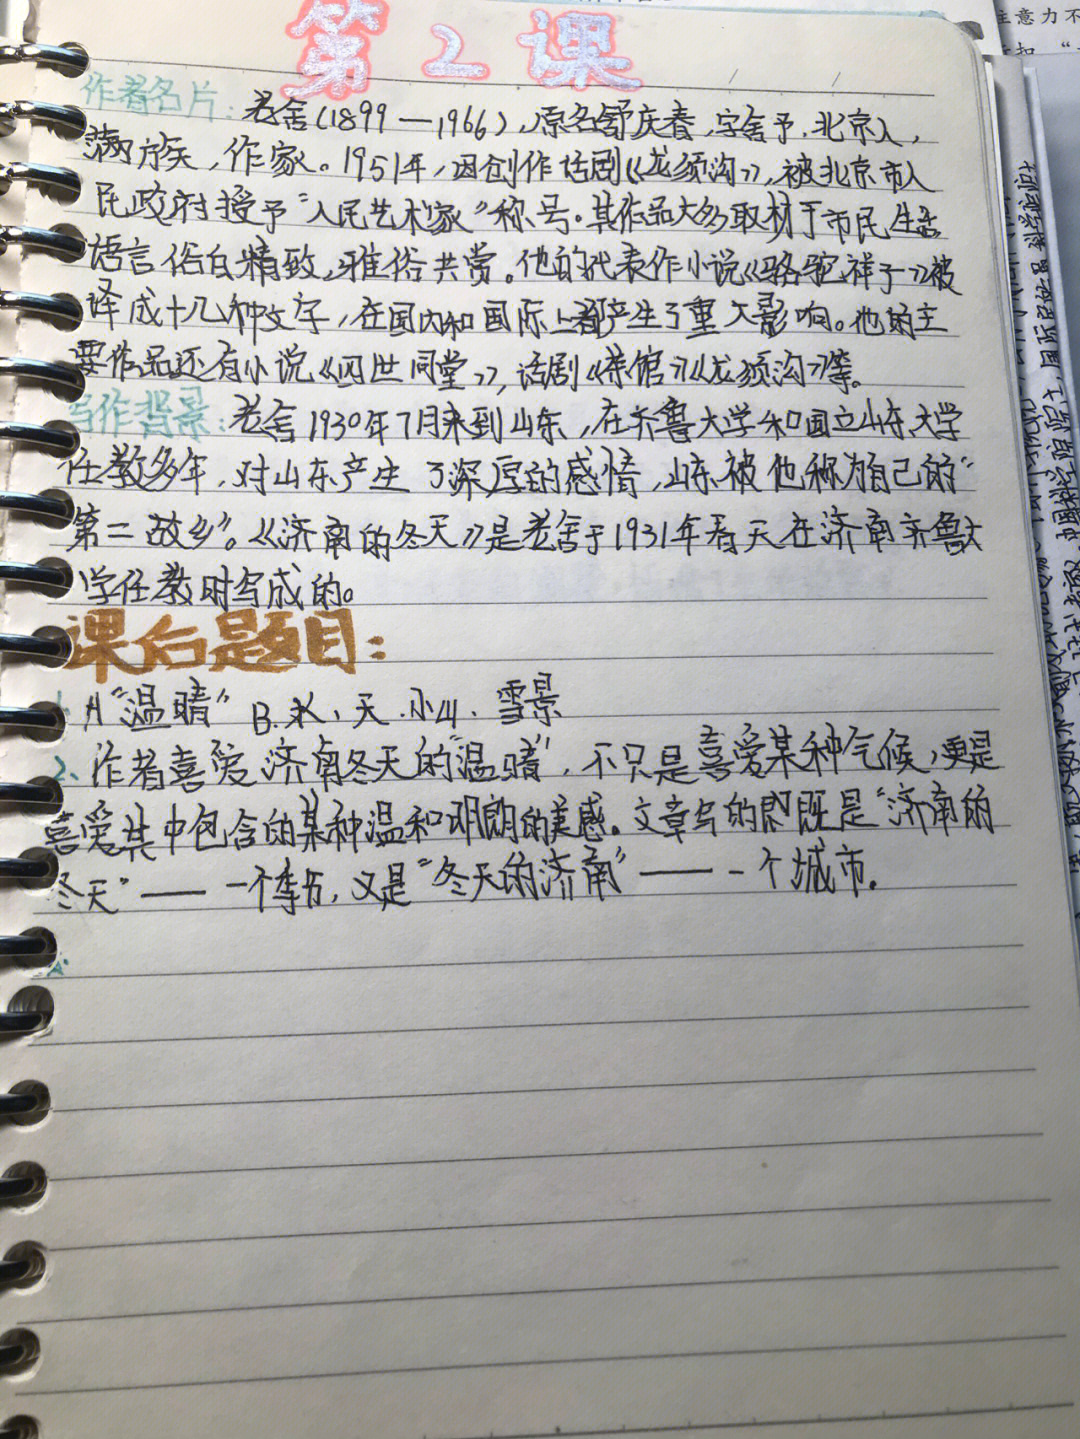 第2课
作者名片：老舍(1899—1966)，原名舒庆春，字舍予，北京人，
满族，作家。1951年，因创作话剧《龙须沟》，被北京市人
民政府授予“人民艺术家”称号。其作品大多取材于市民生活
语言俗白精致，雅俗共赏。他的代表作小说《骆驼祥子》被
译成十几种文字，在国内和国际上都产生了重大影响。他的主
要作品还有小说《四世同堂》，话剧《茶馆》《龙须沟》等。
写作背景：老舍1930年7月来到山东，在齐鲁大学和国立山东大学
任教多年，对山东产生了深厚的感情，山东被他称为自己的“
第二故乡”。《济南的冬天》是老舍于1931年春天在济南齐鲁大
学任教时写成的。
课后题目：
1. A“温晴” B.水、天.小山.雪景
2、作者喜爱济南冬天的“温晴”，不只是喜爱某种气候，更是
喜爱其中包含的某种温和明朗的美感。文章写的即既是“济南的
冬天”——一个季节，又是“冬天的济南”——一个城市。
主意力不